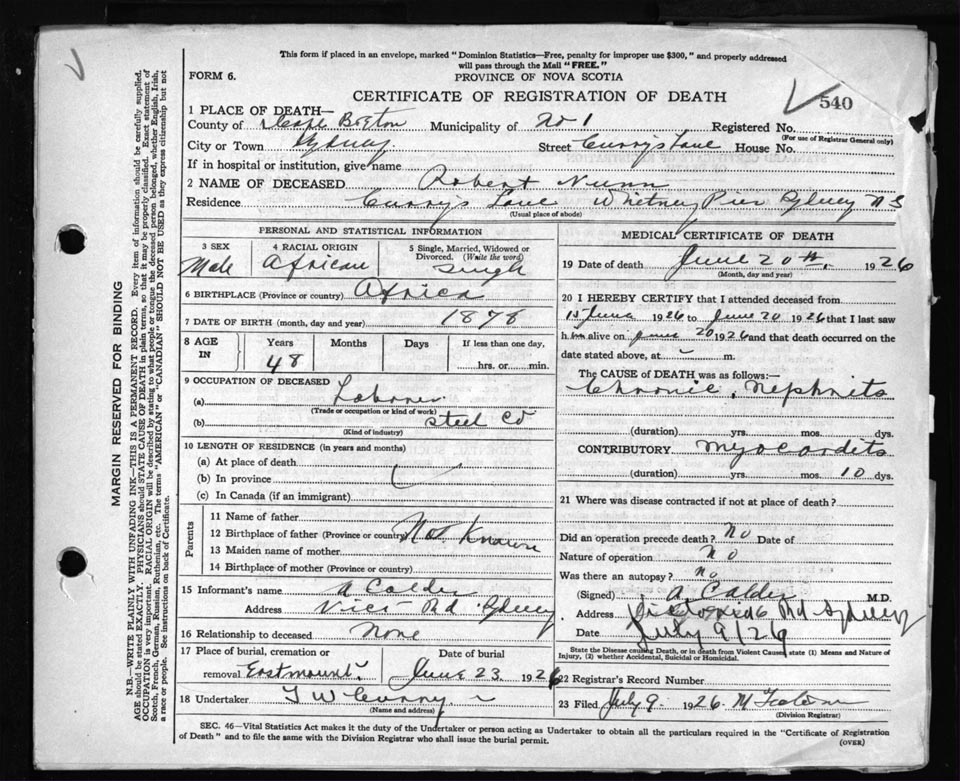 This form if placed in an envelope, marked "Dominion Statistics—Free, penalty for improper use $300," and properly addressed
will pass through the Mail "FREE."
FORM 6.
PROVINCE OF NOVA SCOTIA
CERTIFICATE OF REGISTRATION OF DEATH
540
1 PLACE OF DEATH—
County of Cape Breton Municipality of No 1 Registered No.
(For use of Registrar General only)
City or Town Sydney Street Currys Lane House No.
If in hospital or institution, give name
2 NAME OF DECEASED Robert Nunn
Residence Currys Lane Whitney Pier Sydney N S
(Usual place of abode)
PERSONAL AND STATISTICAL INFORMATION
3 SEX 4 RACIAL ORIGIN 5 Single, Married, Widowed or Divorced. (Write the word)
Male African Single
6 BIRTHPLACE (Province or country) Africa
7 DATE OF BIRTH (month, day and year) 1878
8 AGE IN Years Months Days If less than one day,
48 hrs. or min.
9 OCCUPATION OF DECEASED
(a) Laborer
(Trade or occupation or kind of work)
(b) Steel Co
(Kind of industry)
10 LENGTH OF RESIDENCE (in years and months)
(a) At place of death
(b) In province
(c) In Canada (if an immigrant)
Parents
11 Name of father
12 Birthplace of father (Province or country) Not Known
13 Maiden name of mother
14 Birthplace of mother (Province or Country)
15 Informant's name A Calder
Address Vict Rd Sydney
16 Relationship to deceased None
17 Place of burial, cremation or removal Eastmount Date of burial June 23 1926
18 Undertaker T W Curry
(Name and address)
MEDICAL CERTIFICATE OF DEATH
19 Date of death June 20th, 1926
(Month, day and year)
20 I HEREBY CERTIFY that I attended deceased from
15 June 1926 to June 20 1926 that I last saw
him alive on June 20 1926 and that death occurred on the
date stated above, at m.
The CAUSE OF DEATH was as follows:—
Chronic Nephritis
(duration) yrs. mos. dys.
CONTRIBUTORY Myocarditis
(duration) yrs. mos. 10 dys.
21 Where was disease contracted if not at place of death?
Did an operation precede death? No Date of
Nature of operation No
Was there an autopsy? no
(Signed) A Calder M.D.
Address Victoria Rd Sydney
Date July 9/26
State the Disease causing Death, or in death from Violent Causes, state (1) Means and Nature of
Injury, (2) whether Accidental, Suicidal or Homicidal.
22 Registrar's Record Number
23 Filed July 9 1926
(Division Registrar)
SEC. 46—Vital Statistics Act makes it the duty of the Undertaker or person acting as Undertaker to obtain all the particulars required in the "Certificate of Registration
of Death" and to file the same with the Division Registrar who shall issue the burial permit.
(OVER)
MARGIN RESERVED FOR BINDING
N.B.—WRITE PLAINLY WITH UNFADING INK—THIS IS A PERMANENT RECORD. Every item of information should be carefully supplied.
AGE should be stated EXACTLY. PHYSICIANS should STATE CAUSE OF DEATH in plain terms, so that it may be properly classified. Exact statement of
OCCUPATION is very important. RACIAL ORIGIN will be described by stating to what people or tongue the deceased person belonged, whether English, Irish,
Scotch, French, German, Russian, Ruthenian, etc. The terms "AMERICAN" or "CANADIAN" SHOULD NOT BE USED as they express citizenship but not
a race or people. See instructions on back of Certificate.